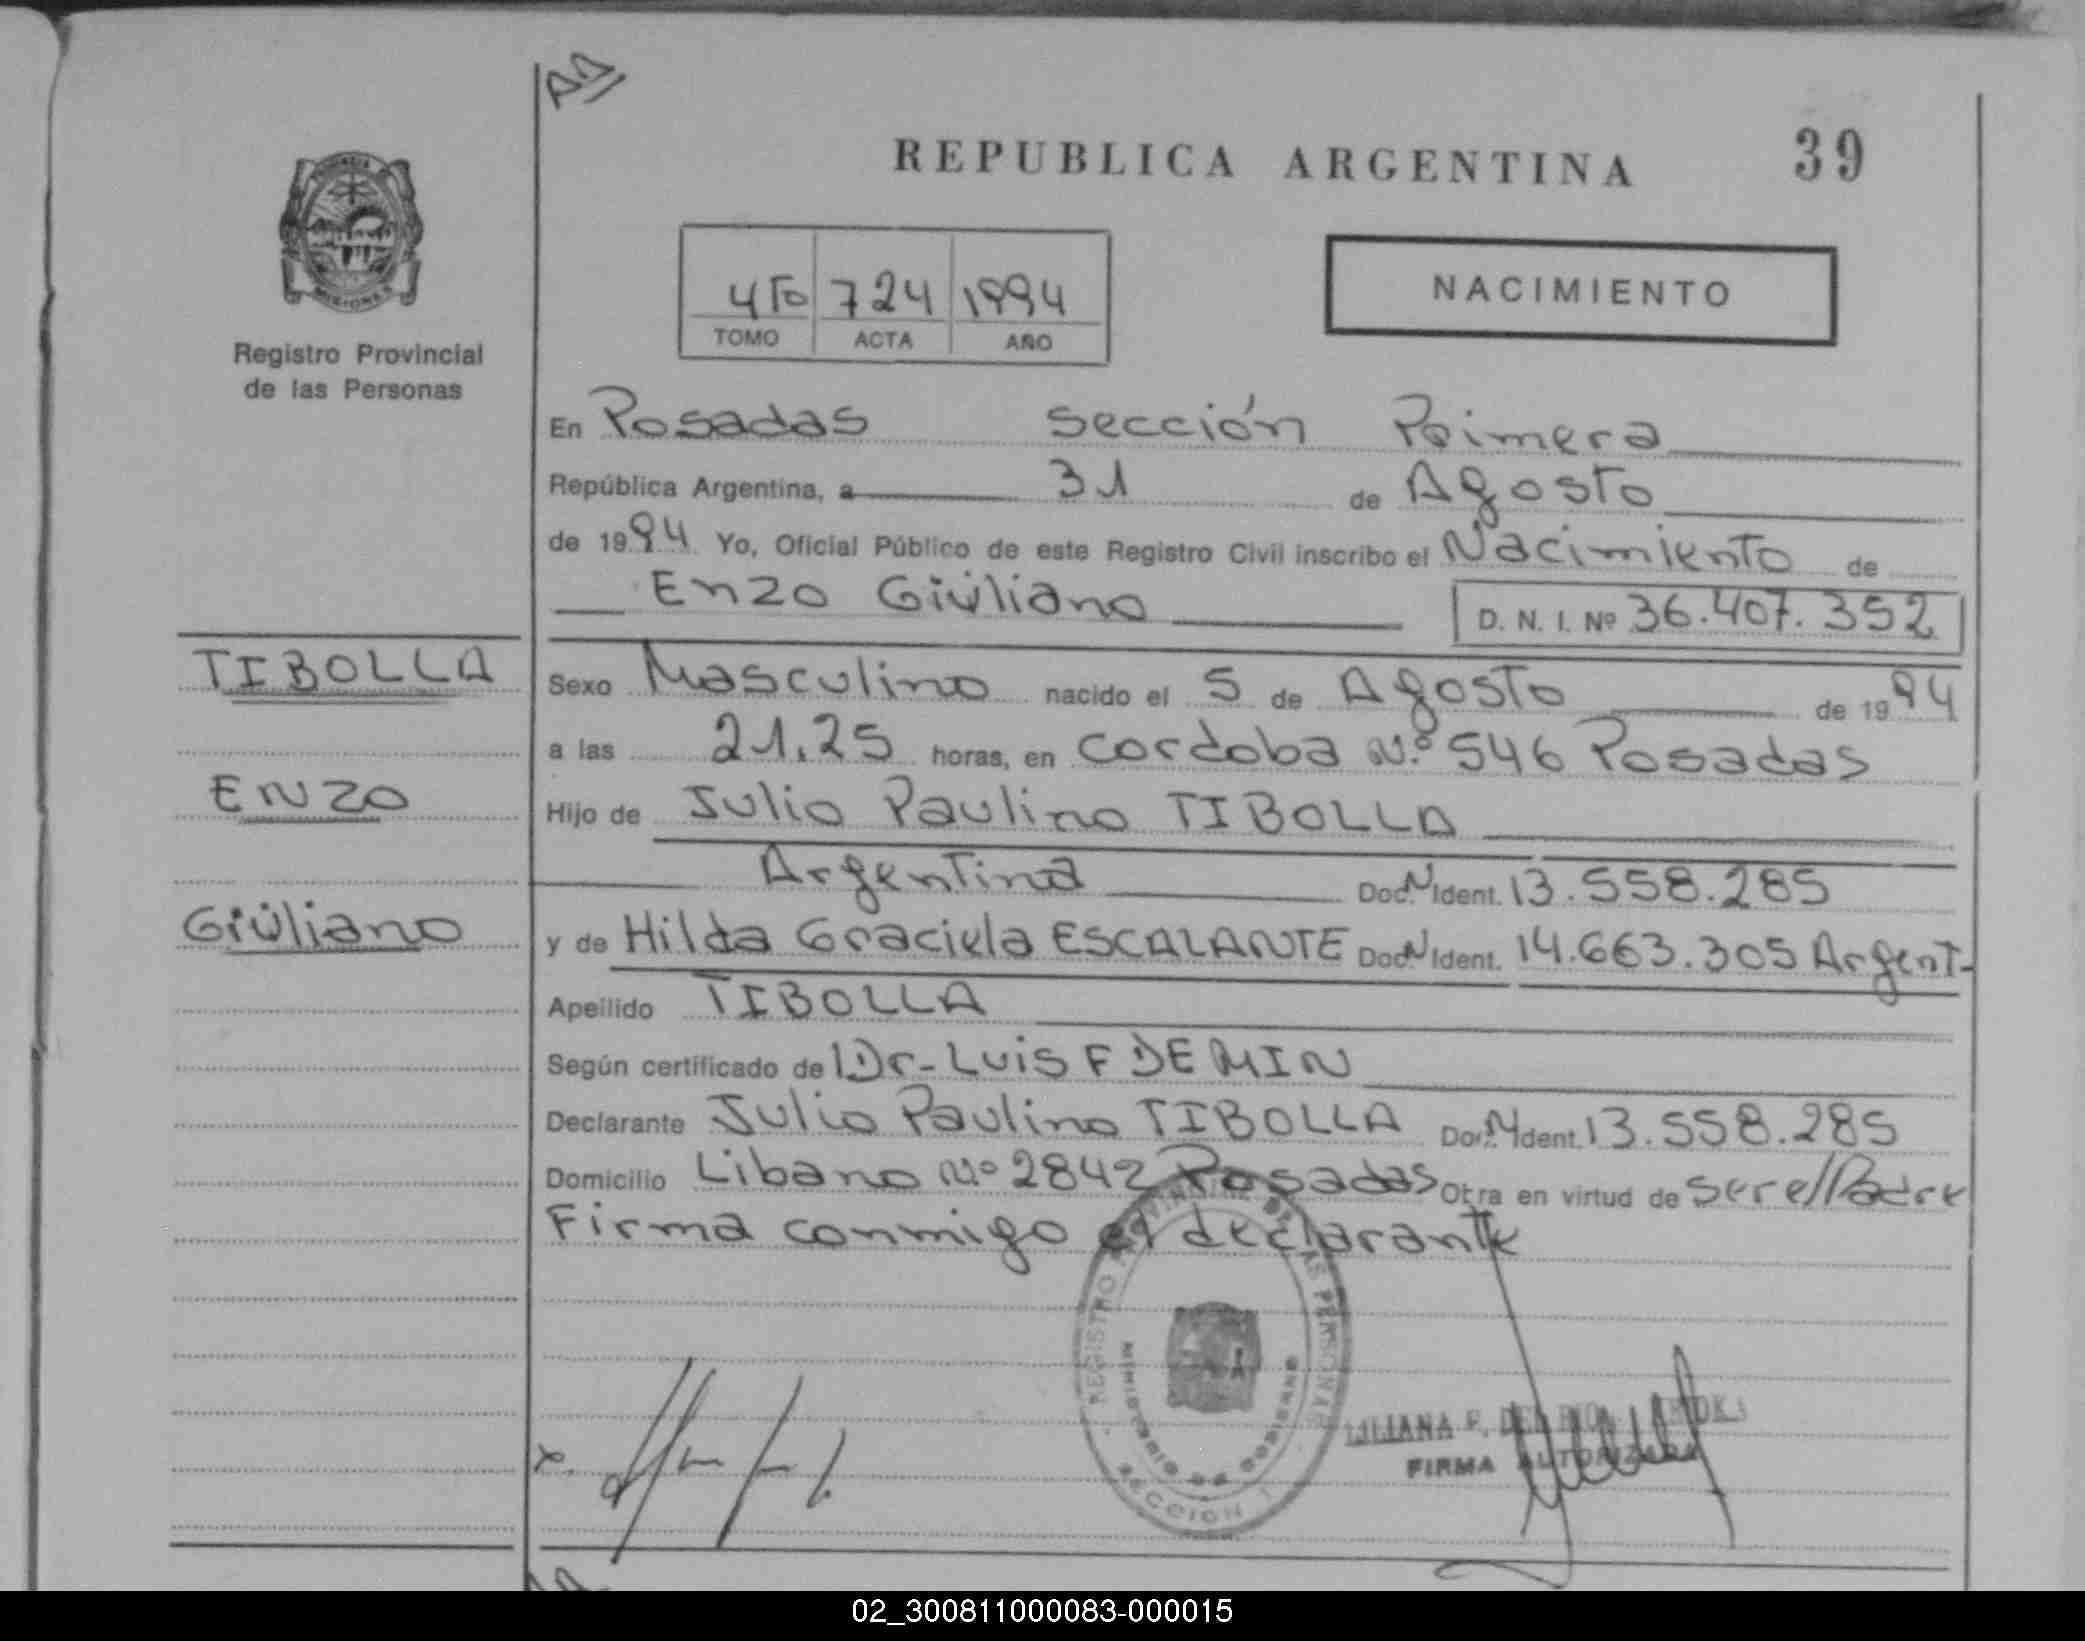 REPUBLICA ARGENTINA
39
MISIONES
Registro Provincial
de las Personas
4To 724 1994
TOMO ACTA AÑO
NACIMIENTO
En Posadas sección Primera
República Argentina, a 31 de Agosto
de 1994 Yo, Oficial Público de este Registro Civil inscribo el Nacimiento de
Enzo Giüliano D. N. I. Nº 36.407.352
TIBOLLA
ENZO
Giüliano
Sexo Masculino nacido el 5 de Agosto de 1994
a las 21.25 horas, en Cordoba Nº 546 Posadas
Hijo de Julio Paulino TIBOLLA
Argentina Doc. N Ident. 13.558.285
y de Hilda Graciela ESCALANTE Doc. N Ident. 14.663.305 Argent-
Apellido TIBOLLA
Según certificado de Dr- Luis F DEMIN
Declarante Julio Paulino TIBOLLA Doc. N Ident. 13.558.285
Domicilio Libano Nº 2842 Posadas Obra en virtud de ser el Padre
Firma conmigo el declarante
REGISTRO PROVINCIAL DE LAS PERSONAS
MINISTERIO DE GOBIERNO
SECCION 1
x.
LILIANA F. DEL RIO
FIRMA AUTORIZADA
02_300811000083-000015